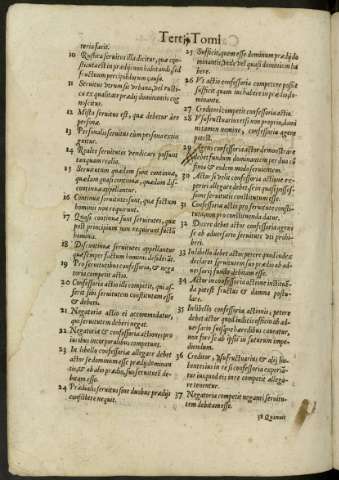 Tertij Tomi
teria sucit.
10 Rustica seruitus illa dicitur, quæ con-
stituta est in prædijs non habitandi, sed
fructuum percipiendorum causa.
11 Seruitus verum sit vrbana, vel rusti-
ca ex qualitate prædij dominantis cog
noscitur.
12 Mixta seruitus est, quæ debetur à re
personæ.
13 Personales seruitutes cum persona extin
guntur.
24 Reales seruitutes vendicari possunt
tanquam reales.
15 Seruitutum quædam sunt continuæ,
quædam quasi continuæ, quædam dis-
continuæ appellantur.
16 Continuæ seruitutes sunt, quæ factum
hominis non requirunt.
17 Quasi continuæ sunt seruitutes, quæ
post principium non requirunt factum
hominis.
18 Discontinuæ seruitutes appellantur
quæ semper factum hominis desiderāt.
19 Pro seruitutibus confessoria, & nega
toria competit actio.
20 Confessoria actio illi competit, qui as-
serit sibi seruitutem constitutam esse
& deberi.
21 Negatoria actio ei accommodatur,
qui seruitutem deberi negat.
22 Negatoria & confessoria actiones pro
iuribus incorporalibus competunt.
23 In libello confessoriæ allegare debet
actor se dominum esse prædij dominan
tis, & ab alio prædio, suo seruitutē de-
bitam esse.
24 Prædialis seruitus sine duobus prædijs
consistere nequit.
25 Sufficit, quem esse dominum prædij do
minantis, bonæ fidei vel quasi dominium ha
bere.
26 Vt actio confessoria competere possit
sufficit quem ius habere in prædio do-
minante.
27 Creditori competit confessoria actio.
28 Vsufructuarius etsi non proprio, domi
ni tamen nomine, confessoria agere
potest.
29 Agens confessoria actor demonstrare
debet fundum dominantem per duo cō
finia & eodem modo seruientem.
30 Actor si velit confessoria actione ex-
periri allegare debet se in quasi possessio-
nem seruitutis constitutum esse.
31 Confessoria actio pro seruitute consti-
tuta non pro constituenda datur.
32 Dicere debet actor confessoria agens
se ab aduersario seruitute vti prohi-
beri.
33 In libello debet actor petere quod iudex
declaret seruitutem prædio suo ab ad-
uersarij fundo debitam esse.
34 Actor in confessoria actione intentan-
da potest fructus & damna postu-
lare.
35 In libello confessoriæ actionis, petere
debet actor quod iudicis officio ab ad-
uersario suisque hæredibus caueatur,
non fore se ab ipso vsu eius seruitutis im-
pediendum.
36 Creditor, vsufructuarius & alij hu-
ius tertius in re si confessoria experian-
tur ius quod ei in re competit allega-
re tenentur.
37 Negatoria competit neganti seruitu-
tem debitam esse.
38 Quamuis